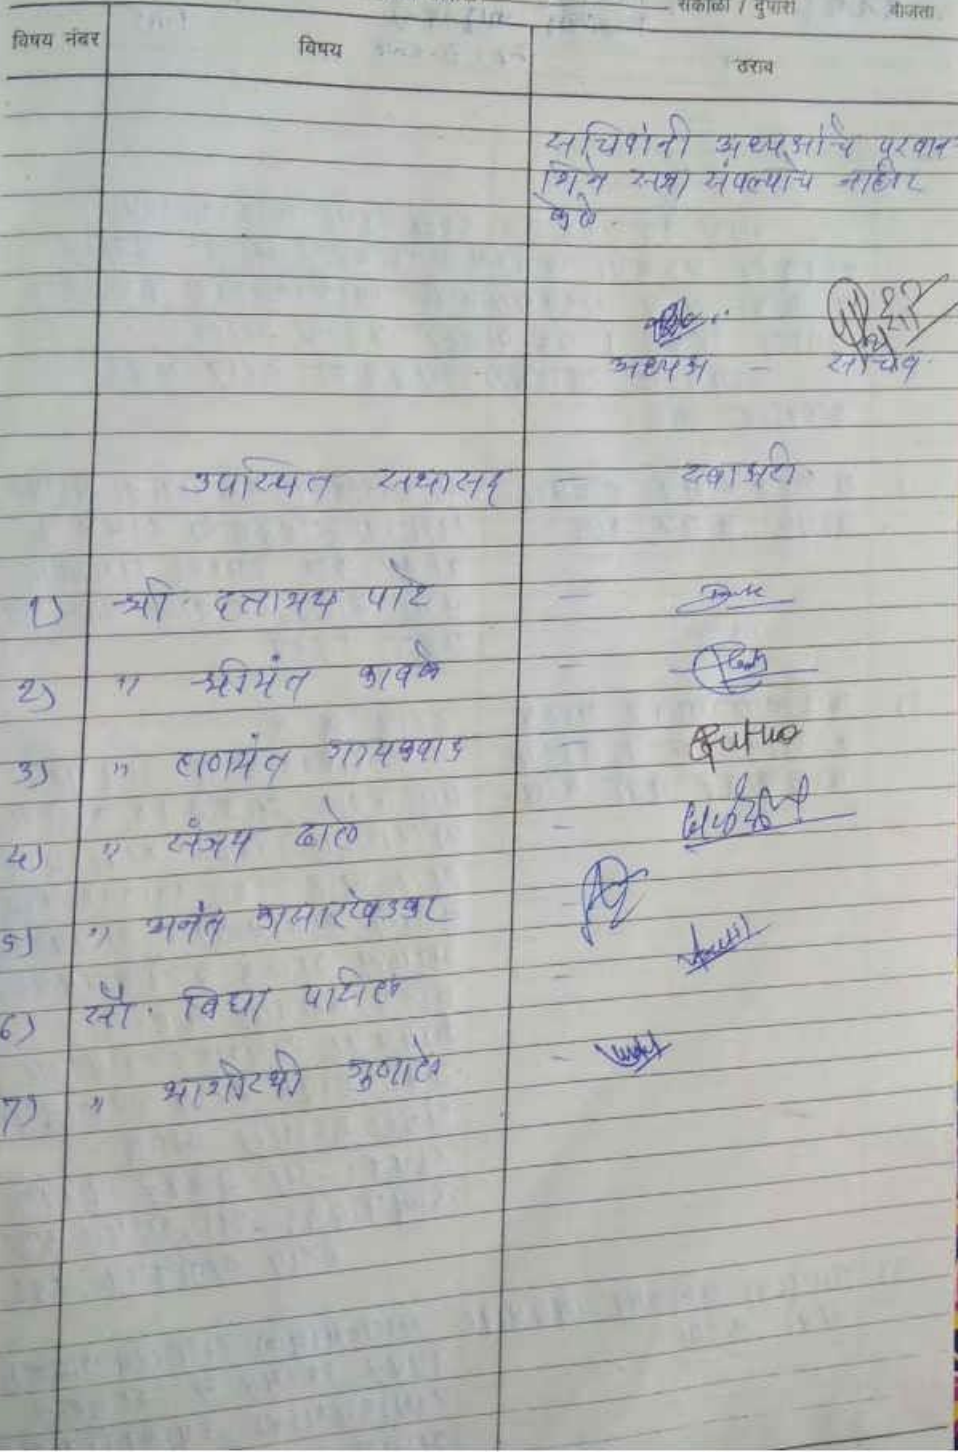 सकाळी / दुपारी वाजता
विषय नंबर विषय ठराव
सचिवांनी अध्यक्षांचे परवान
गिने सभा संपल्याचे जाहीर
केले.
अध्यक्ष - सचिव.
उपस्थित सभासद - स्वाक्षरी.
1) श्री. दत्तात्रय पाटे -
2) " श्रीमंत कावळे -
3) " हणमंत गायकवाड -
4) " संजय ढोले -
5) " अनंत कासारखेडकर -
6) सौ. विद्या पाटील -
7) " भागीरथी गुणाले -